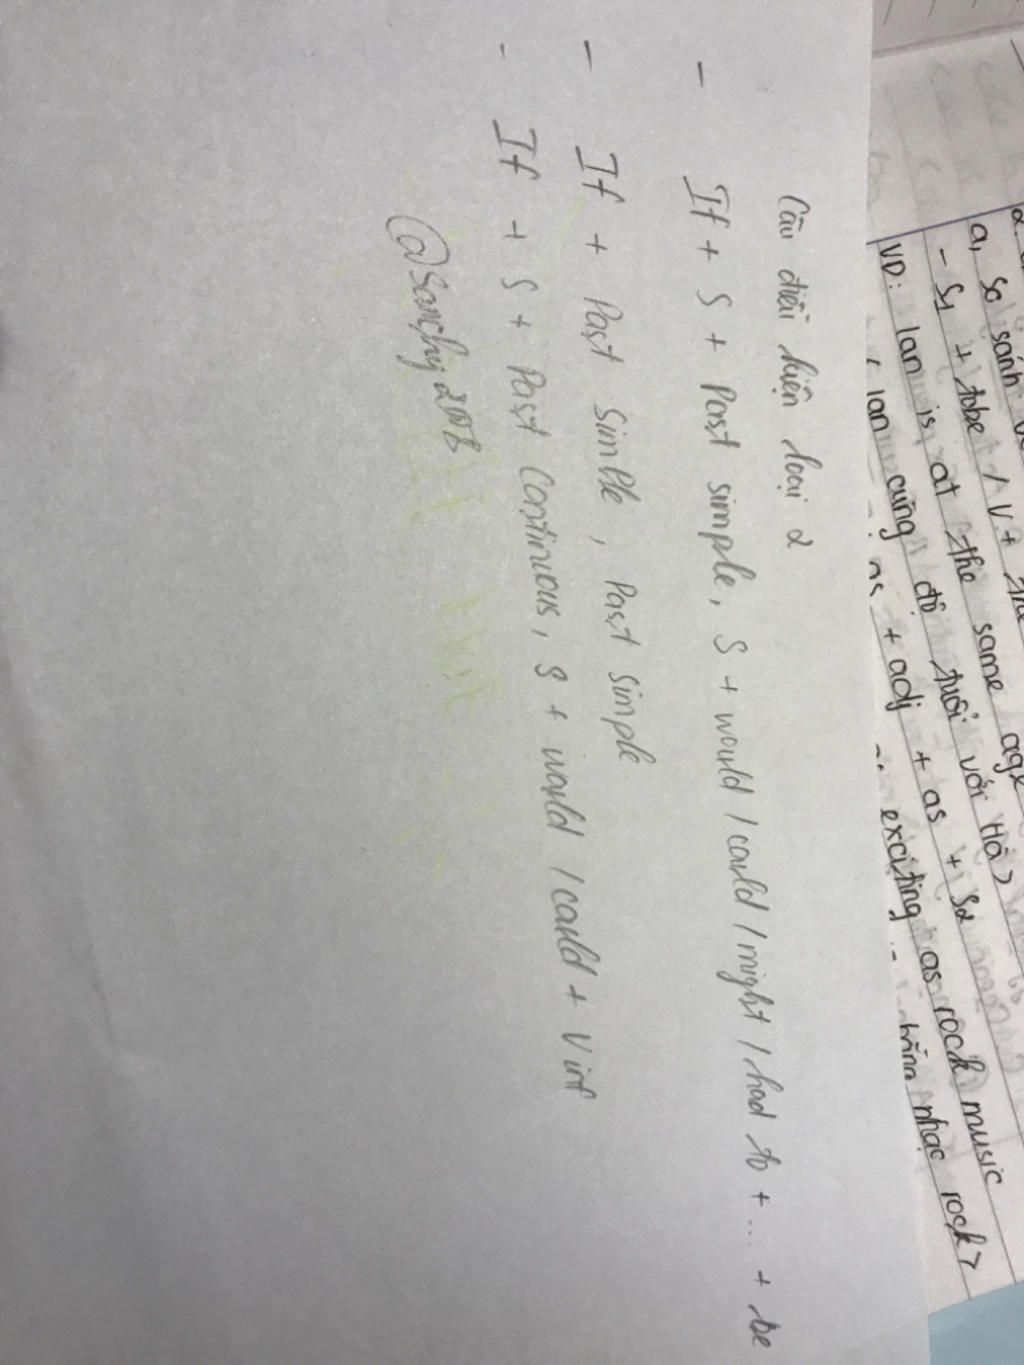 a, so sánh
- S1 + tobe / V + the same age
VD: lan is at the same age
< lan cùng độ tuổi với Hà>
as + adj + as + S2
exciting as rock music
nhạc rock>
Câu điều kiện loại 2
- If + S + Past simple, S + would / could / might / had to + ... + be
- If + Past simple, Past simple
- If + S + Past Continuous, S + would / could + V inf